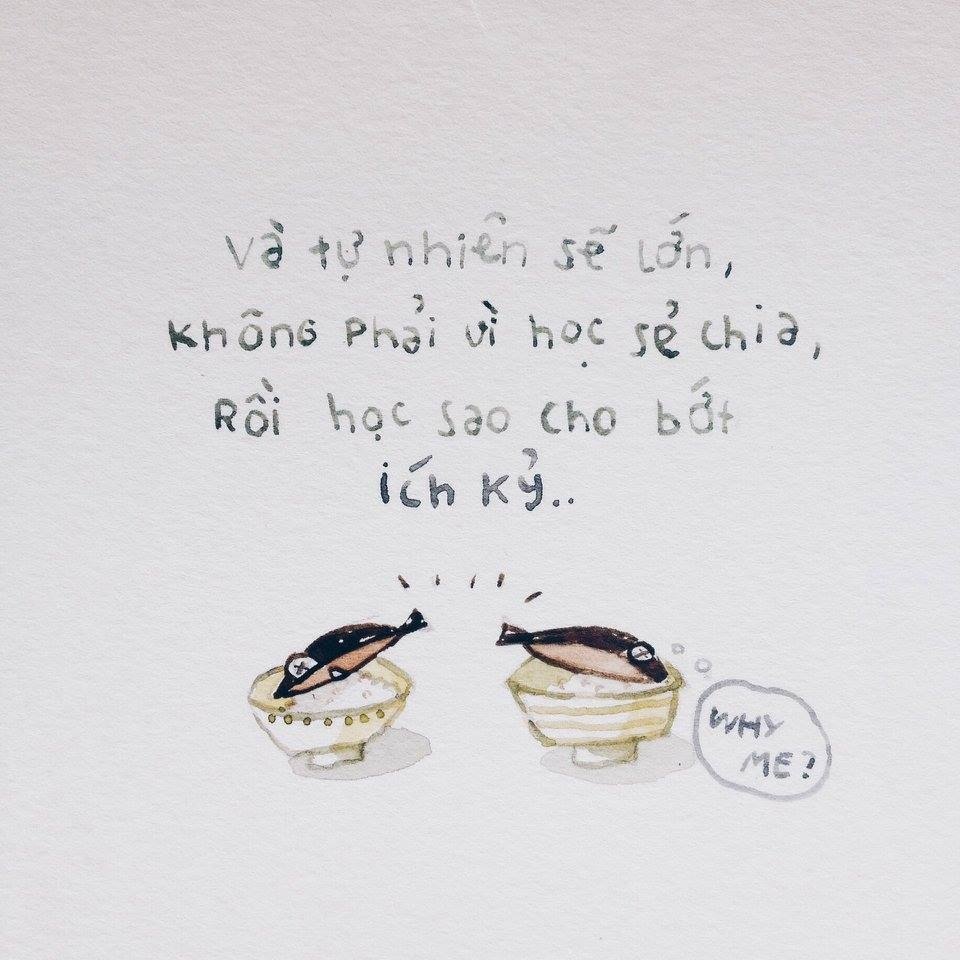 Và tự nhiên sẽ lớn,
Không phải vì học sẻ chia,
Rồi học sao cho bớt
ích kỷ..
WHY
ME?